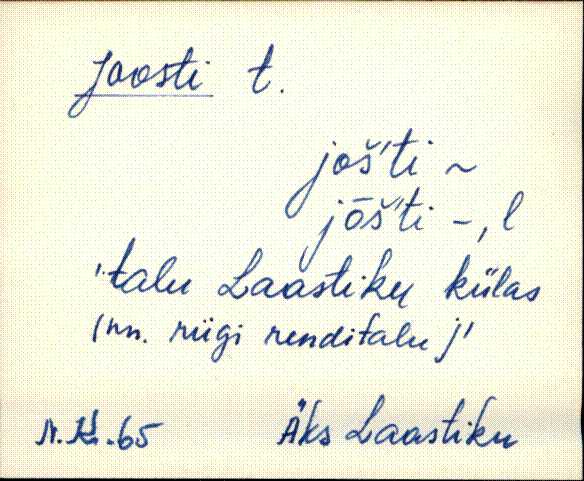 Joosti t.
još'ti ~
jōš'ti -, l
'talu Laastiku külas
(nn. riigi renditalu)'
Äks Laastiku